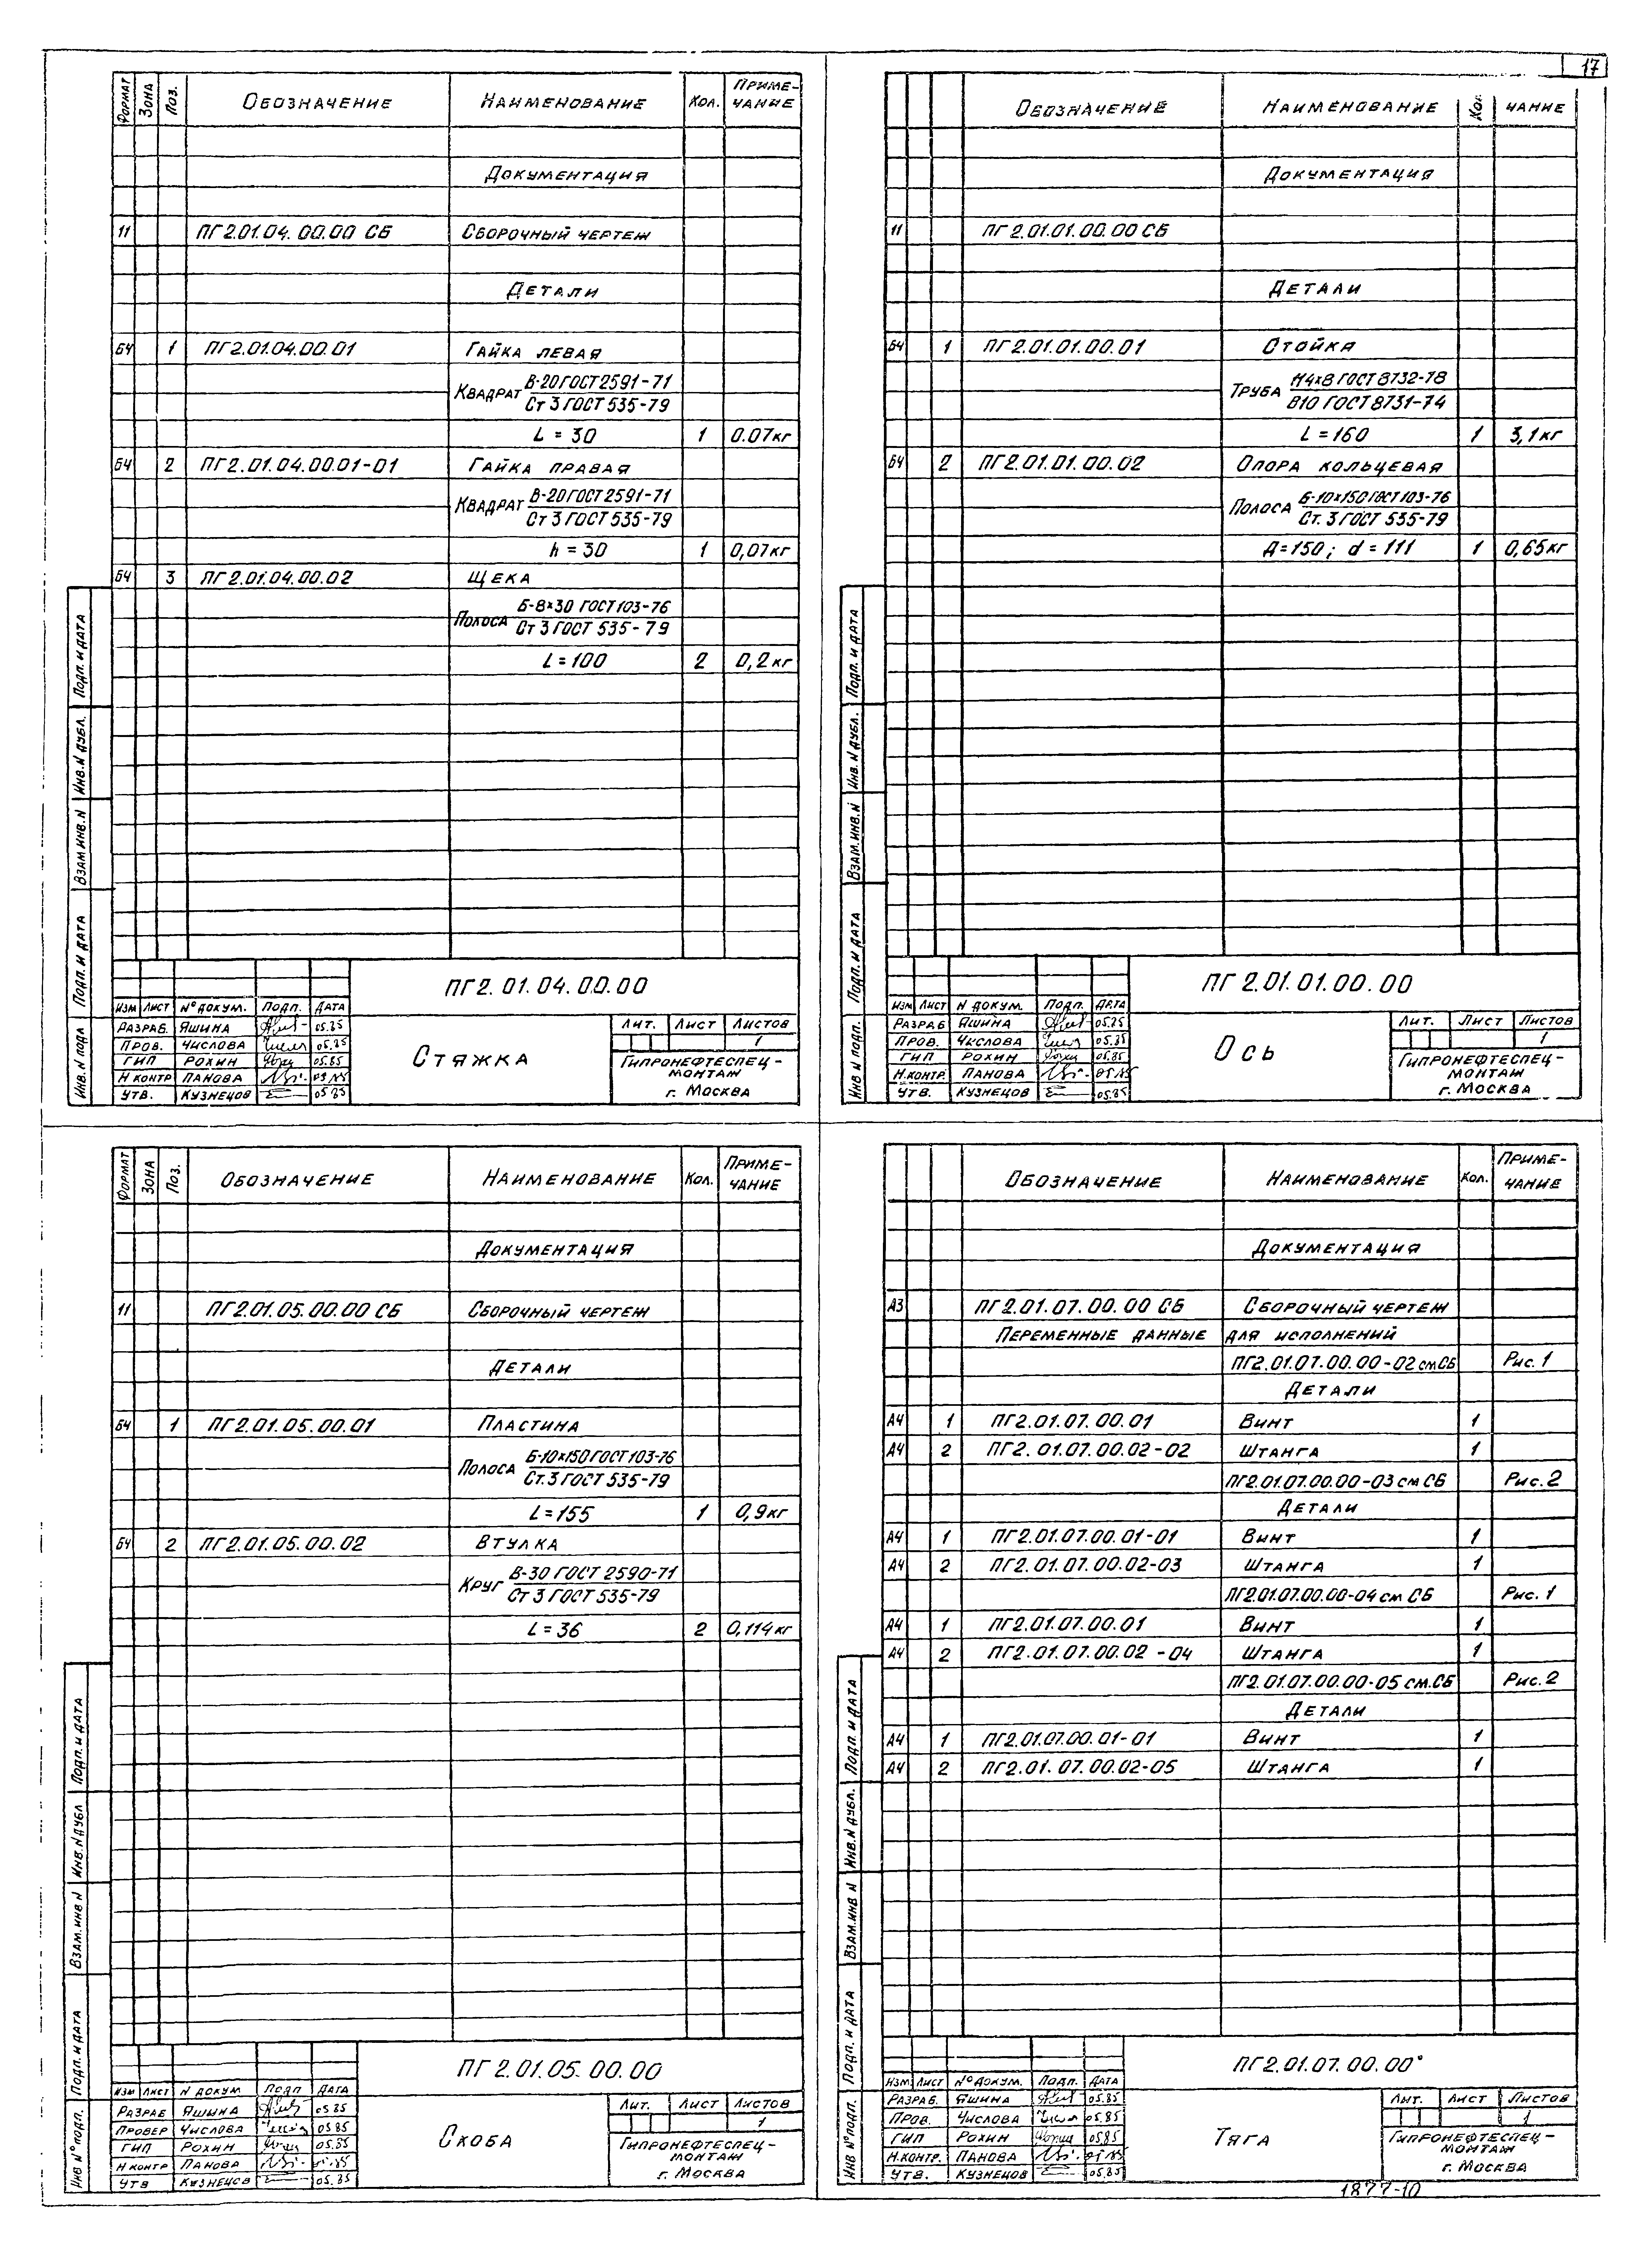 17
ФОРМАТ ЗОНА ПОЗ. ОБОЗНАЧЕНИЕ НАИМЕНОВАНИЕ КОЛ. ПРИМЕ-
ЧАНИЕ
ДОКУМЕНТАЦИЯ
11 ПГ2.01.04.00.00 СБ СБОРОЧНЫЙ ЧЕРТЕЖ
ДЕТАЛИ
БЧ 1 ПГ2.01.04.00.01 ГАЙКА ЛЕВАЯ
КВАДРАТ В-20 ГОСТ 2591-71
Ст 3 ГОСТ 535-79
L = 30 1 0.07кг
БЧ 2 ПГ2.01.04.00.01-01 ГАЙКА ПРАВАЯ
КВАДРАТ В-20 ГОСТ 2591-71
Ст 3 ГОСТ 535-79
h = 30 1 0,07кг
БЧ 3 ПГ2.01.04.00.02 ЩЕКА
ПОЛОСА Б-8×30 ГОСТ 103-76
Ст 3 ГОСТ 535-79
L=100 2 0,2 кг
ИНВ. N ПОДЛ ПОДП. И ДАТА ВЗАМ ИНВ. N ИНВ. N ДУБЛ. ПОДП. И ДАТА
ПГ2.01.04.00.00
ИЗМ ЛИСТ № ДОКУМ. ПОДП. ДАТА
РАЗРАБ. ЯШИНА 05.85
ПРОВ. ЧИСЛОВА 05.85
ГИП РОХИН 05.85
Н.КОНТР ПАНОВА 05.85
УТВ. КУЗНЕЦОВ 05.85
СТЯЖКА
ЛИТ. ЛИСТ ЛИСТОВ
1
ГИПРОНЕФТЕСПЕЦ-
МОНТАЖ
г. МОСКВА
ОБОЗНАЧЕНИЕ НАИМЕНОВАНИЕ КОЛ. ЧАНИЕ
ДОКУМЕНТАЦИЯ
11 ПГ2.01.01.00.00 СБ
ДЕТАЛИ
БЧ 1 ПГ2.01.01.00.01 СТОЙКА
ТРУБА 114×8 ГОСТ 8732-78
В10 ГОСТ 8731-74
L=160 1 3,1кг
БЧ 2 ПГ2.01.01.00.02 ОПОРА КОЛЬЦЕВАЯ
ПОЛОСА Б-10×150 ГОСТ 103-76
Ст. 3 ГОСТ 535-79
Д=150; d = 111 1 0,65кг
ИНВ N ПОДЛ. ПОДП. И ДАТА ВЗАМ. ИНВ. N ИНВ. N ДУБЛ. ПОДП. И ДАТА
ПГ2.01.01.00.00
ИЗМ ЛИСТ N ДОКУМ. ПОДП. ДАТА
РАЗРАБ ЯШИНА 05.85
ПРОВ. ЧИСЛОВА 05.85
ГИП РОХИН 05.85
Н.КОНТР. ПАНОВА 05.85
УТВ. КУЗНЕЦОВ 05.85
ОСЬ
ЛИТ. ЛИСТ ЛИСТОВ
1
ГИПРОНЕФТЕСПЕЦ-
МОНТАЖ
г. МОСКВА
ФОРМАТ ЗОНА ПОЗ. ОБОЗНАЧЕНИЕ НАИМЕНОВАНИЕ КОЛ. ПРИМЕ-
ЧАНИЕ
ДОКУМЕНТАЦИЯ
11 ПГ2.01.05.00.00 СБ СБОРОЧНЫЙ ЧЕРТЕЖ
ДЕТАЛИ
БЧ 1 ПГ2.01.05.00.01 ПЛАСТИНА
ПОЛОСА Б-10×150 ГОСТ 103-76
Ст. 3 ГОСТ 535-79
L=155 1 0,9кг
БЧ 2 ПГ2.01.05.00.02 ВТУЛКА
КРУГ В-30 ГОСТ 2590-71
Ст 3 ГОСТ 535-79
L=36 2 0,114кг
ИНВ № ПОДЛ. ПОДП. И ДАТА ВЗАМ. ИНВ N ИНВ. N ДУБЛ ПОДП. И ДАТА
ПГ2.01.05.00.00
ИЗМ ЛИСТ N ДОКУМ ПОДП ДАТА
РАЗРАБ ЯШИНА 05 85
ПРОВЕР ЧИСЛОВА 05 85
ГИП РОХИН 05.85
Н КОНТР ПАНОВА 05.85
УТВ КУЗНЕЦОВ 05.85
СКОБА
ЛИТ. ЛИСТ ЛИСТОВ
1
ГИПРОНЕФТЕСПЕЦ-
МОНТАЖ
г. МОСКВА
ОБОЗНАЧЕНИЕ НАИМЕНОВАНИЕ КОЛ. ПРИМЕ-
ЧАНИЕ
ДОКУМЕНТАЦИЯ
А3 ПГ2.01.07.00.00 СБ СБОРОЧНЫЙ ЧЕРТЕЖ
ПЕРЕМЕННЫЕ ДАННЫЕ ДЛЯ ИСПОЛНЕНИЙ
ПГ2.01.07.00.00-02 см.СБ Рис. 1
ДЕТАЛИ
А4 1 ПГ2.01.07.00.01 ВИНТ 1
А4 2 ПГ2.01.07.00.02-02 ШТАНГА 1
ПГ2.01.07.00.00-03 см СБ Рис. 2
ДЕТАЛИ
А4 1 ПГ2.01.07.00.01-01 ВИНТ 1
А4 2 ПГ2.01.07.00.02-03 ШТАНГА 1
ПГ2.01.07.00.00-04 см СБ Рис. 1
А4 1 ПГ2.01.07.00.01 ВИНТ 1
А4 2 ПГ2.01.07.00.02 -04 ШТАНГА 1
ПГ2.01.07.00.00-05 см.СБ Рис. 2
ДЕТАЛИ
А4 1 ПГ2.01.07.00.01-01 ВИНТ 1
А4 2 ПГ2.01.07.00.02-05 ШТАНГА 1
ИНВ № ПОДЛ. ПОДП. И ДАТА ВЗАМ. ИНВ N ИНВ. N ДУБЛ. ПОДП. И ДАТА
ПГ2.01.07.00.00
ИЗМ ЛИСТ № ДОКУМ. ПОДП. ДАТА
РАЗРАБ. ЯШИНА 05.85
ПРОВ. ЧИСЛОВА 05.85
ГИП РОХИН 05.85
Н.КОНТР. ПАНОВА 05.85
УТВ. КУЗНЕЦОВ 05.85
ТЯГА
ЛИТ. ЛИСТ ЛИСТОВ
1
ГИПРОНЕФТЕСПЕЦ-
МОНТАЖ
г. МОСКВА
1877-10